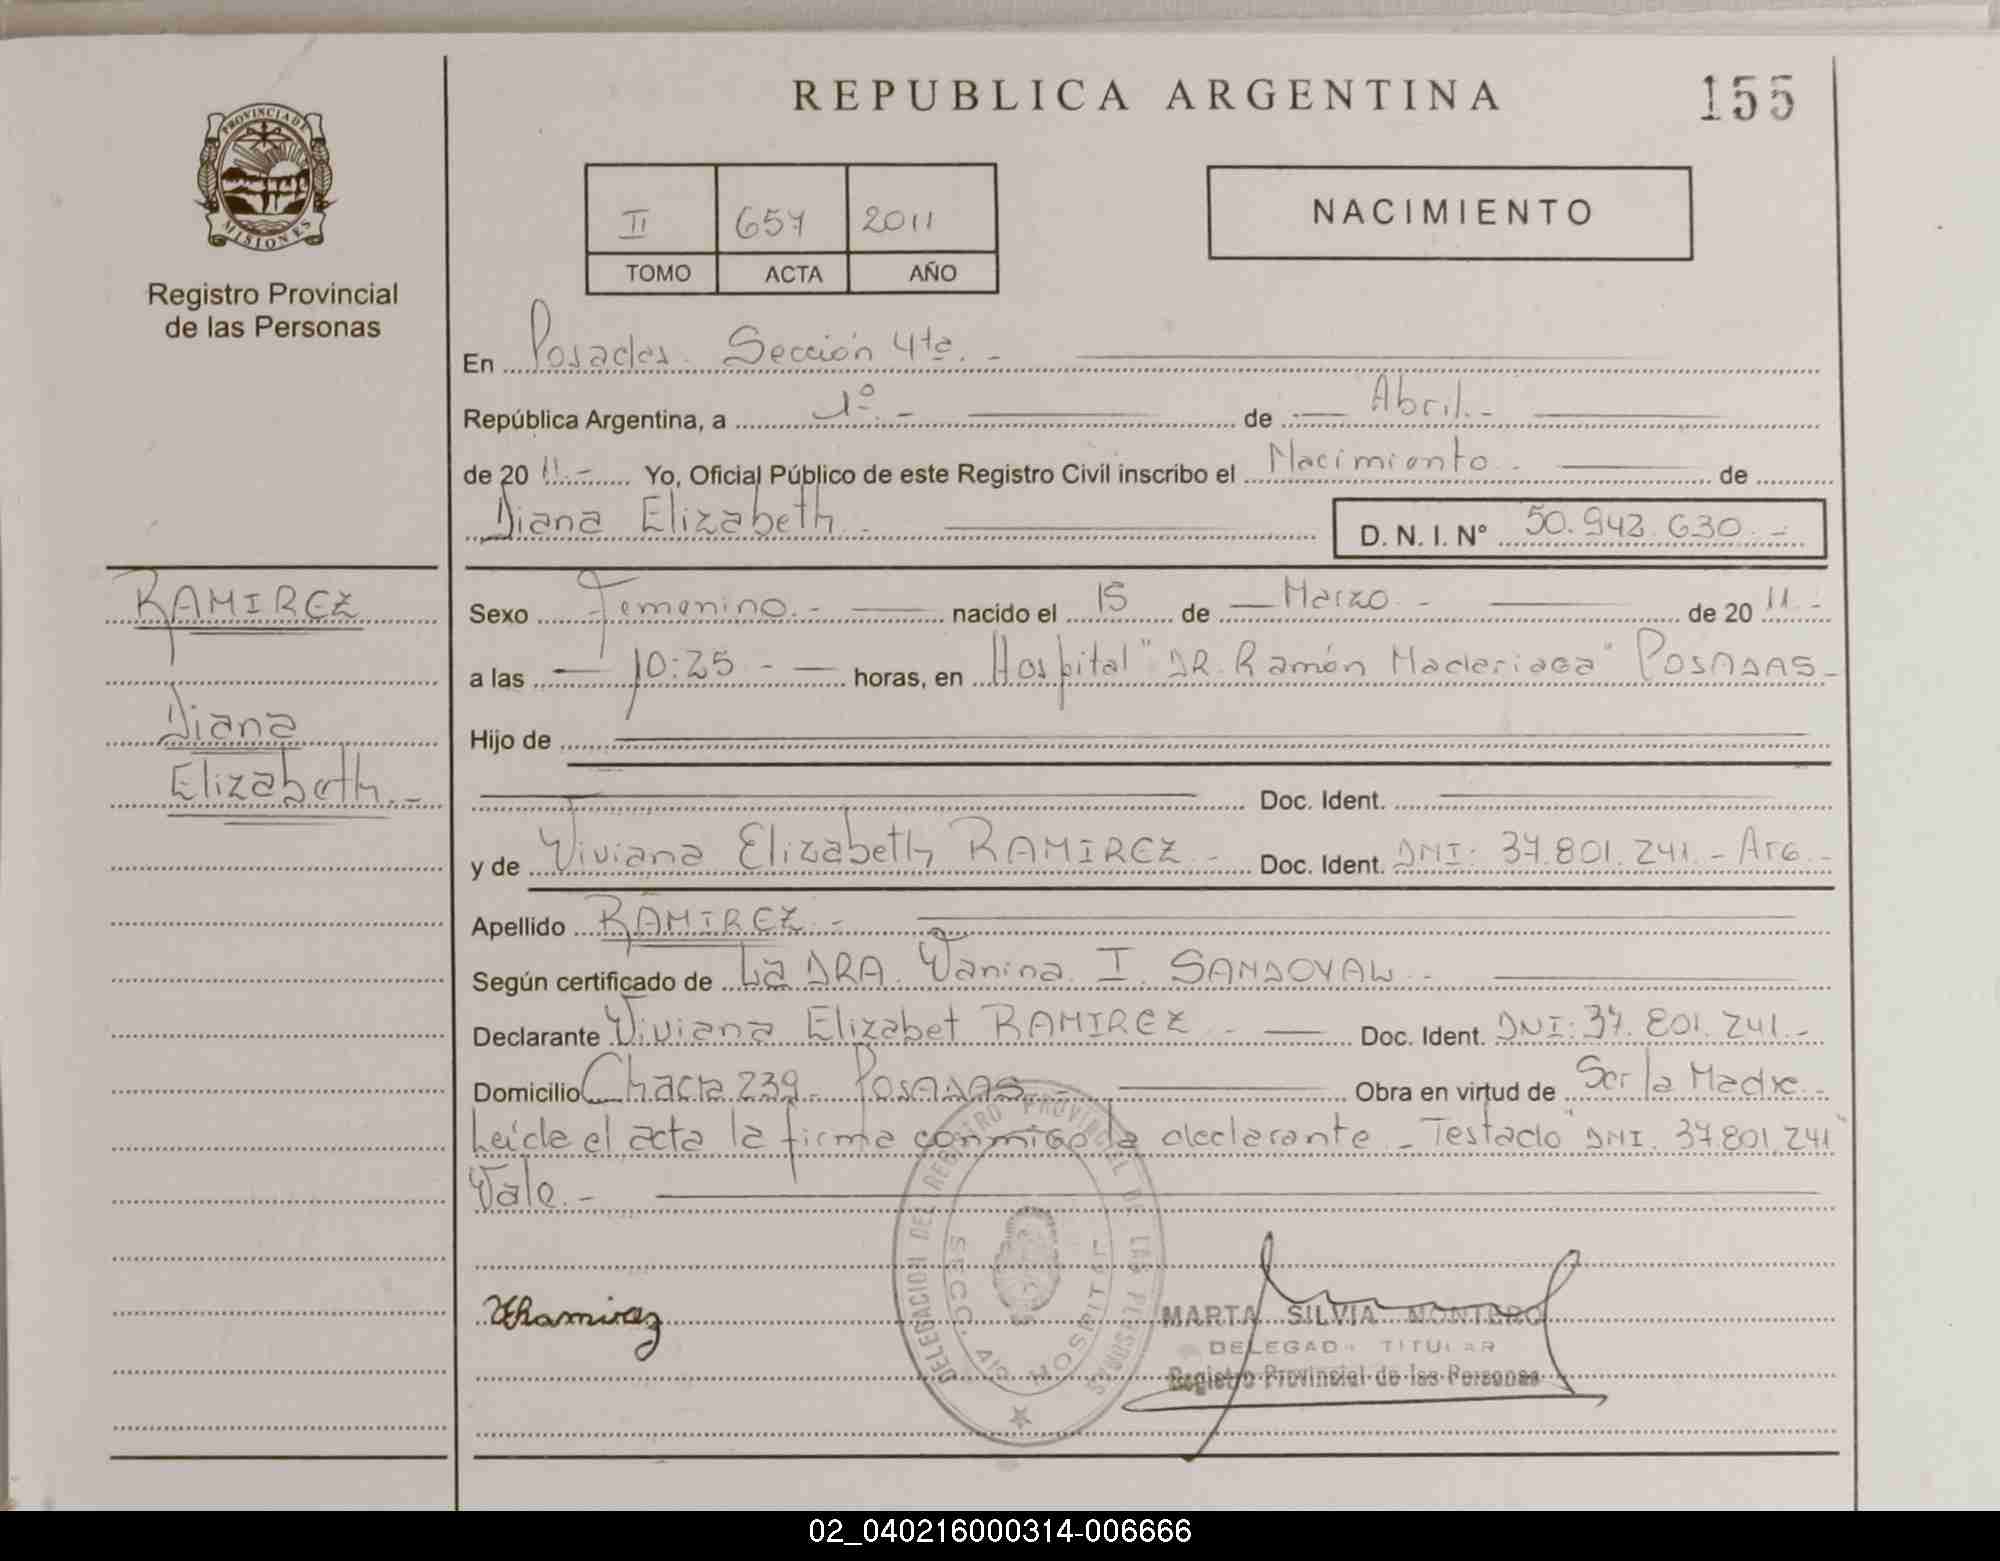 REPUBLICA ARGENTINA
155
PROVINCIA DE
MISIONES
Registro Provincial
de las Personas
II 657 2011
TOMO ACTA AÑO
NACIMIENTO
En Posadas. Sección 4ta. -
República Argentina, a 1º. - de Abril. -
de 20 11. - Yo, Oficial Público de este Registro Civil inscribo el Nacimiento. de
Diana Elizabeth. D. N. I. Nº 50.943.630. -
RAMIREZ
Diana
Elizabeth. -
Sexo Femenino. - nacido el 15 de Marzo. - de 20 11. -
a las 10:25 - horas, en Hospital "DR. Ramón Madariaga" POSADAS -
Hijo de
Doc. Ident.
y de Viviana Elizabeth RAMIREZ - Doc. Ident. DNI: 37.801.241. - Arg. -
Apellido RAMIREZ. -
Según certificado de La DRA. Vanina. I. SANDOVAL. -
Declarante Viviana Elizabet RAMIREZ. - Doc. Ident. DNI: 37.801.241. -
Domicilio Chacra 239 - POSADAS - Obra en virtud de Ser la Madre. -
Leída el acta la firma conmigo la declarante. - Testado "DNI. 37.801.241"
Vale. -
DELEGACION DEL REGISTRO PROVINCIAL DE LAS PERSONAS
SECC. 4ta HOSPITAL
VRamirez
MARTA SILVIA MONTERO
DELEGADA TITULAR
Registro Provincial de las Personas
02_040216000314-006666